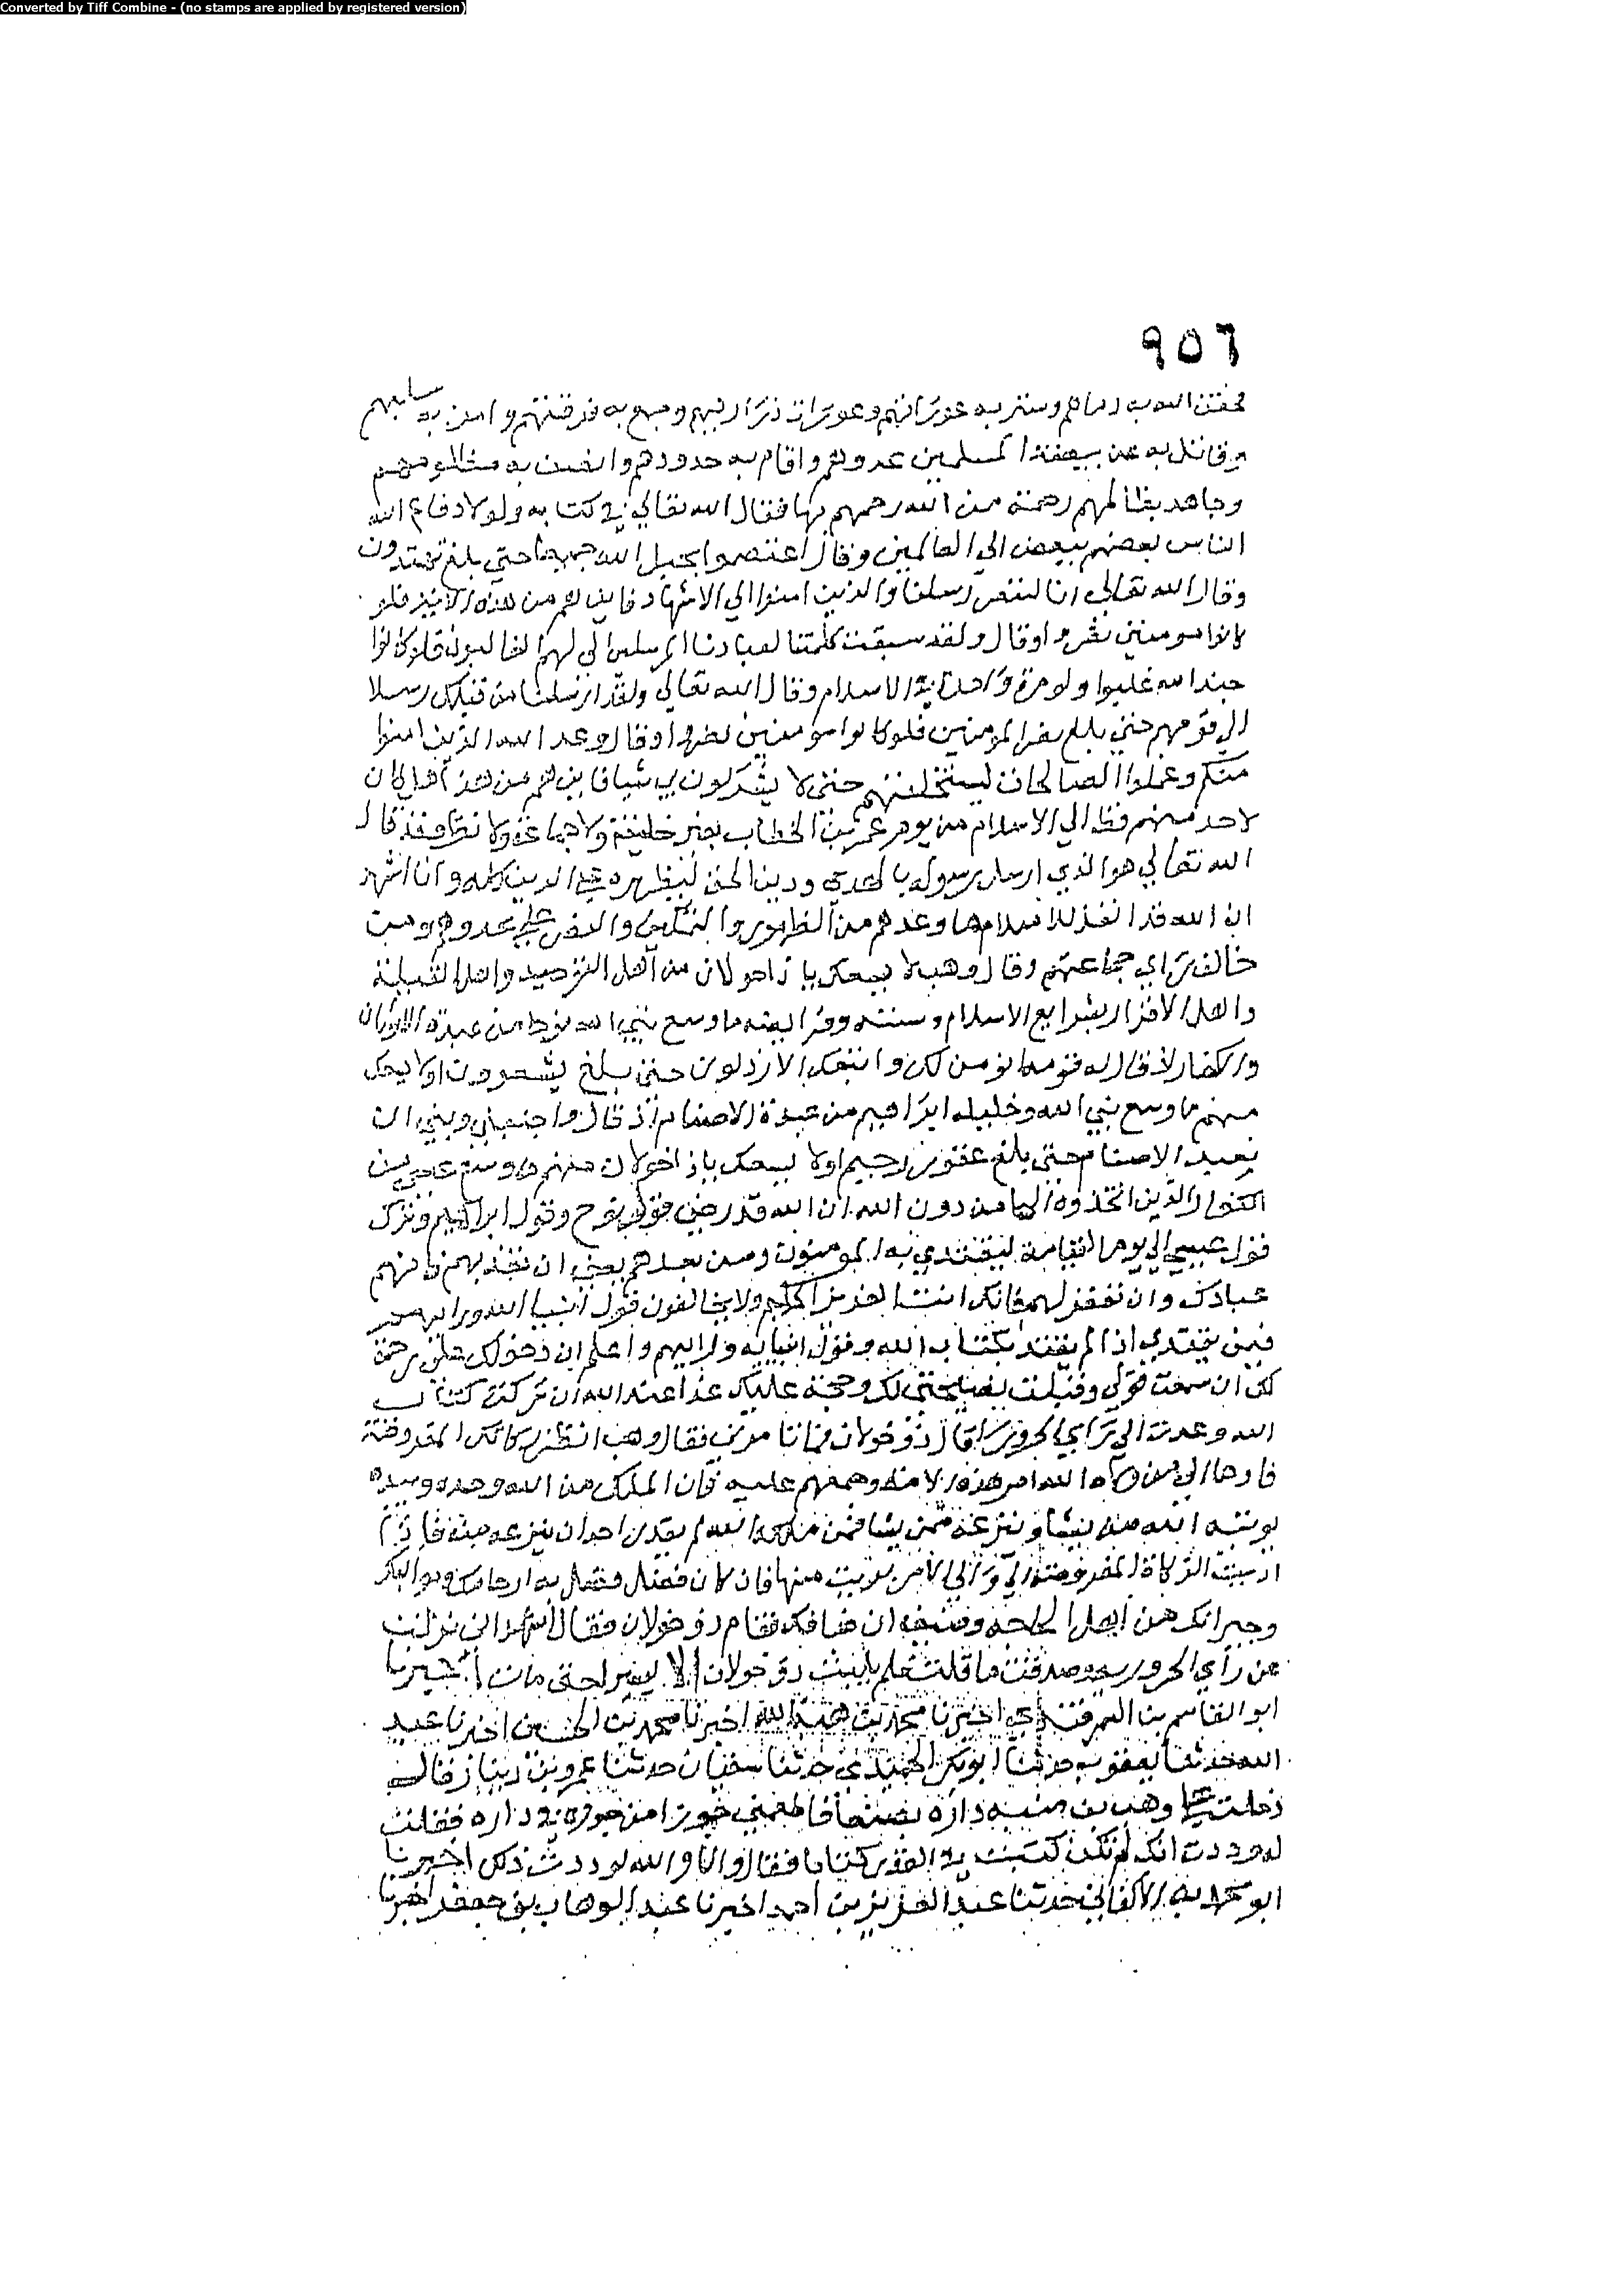 Converted by Tiff Combine - (no stamps are applied by registered version)
٩٥٦
فحقن الله به دماهم وستر به عوراتهم وعورات ذراريهم وجمع به فرقتهم وامن به سبلهم
وقاتل به عن بيضة المسلمين عدوهم واقام به حدودهم وانصف به مظلومهم
وجاهد بظالمهم رحمة من الله رحمهم بها فقال الله تعالي في كتابه ولولا دفاع الله
الناس بعضهم ببعض الي العالمين وقال اعتصموا بحبل الله جميعا حتي بلغ تهتدون
وقال الله تعالي انا لننصر رسلنا والذين امنوا الي الاشهاد فاين هم من هذه الاية فلو
كانوا مومنين نصروا وقال ولقد سبقت كلمتنا لعبادنا المرسلين الي لهم الغالبون فلو كانوا
جند الله غلبوا ولو مرة واحدة في الاسلام وقال الله تعالي ولقد ارسلنا من قبلك رسلا
الي قومهم حتي بلغ نصر المومنين فلو كانوا مومنين نصروا وقال وعد الله الذين امنوا
منكم وعملوا الصالحات ليستخلفنهم حتي لا يشركون بي شيا فاين هم من هذا هل كان
لاحد منهم قط الي الاسلام من يوم عمر بن الخطاب بغير خليفة ولا جماعة ولا نظر وقد قال
الله تعالي هو الذي ارسل رسوله بالهدي ودين الحق ليظهره علي الدين كله وانا اشهد
ان الله قد انفذ للاسلام ما وعدهم من الظهور والتمكين والنصر علي عدوهم ومن
خالف راي جماعتهم وقال وهب لا يسعك يا ذا خولان من اهل التوحيد واهل القبلة
واهل الاقرار بشرايع الاسلام وسننه وفرايضه ما وسع نبي الله نوحا من عبدة الاوثان
والكفار اذ قال له قومه انومن لك واتبعك الارذلون حتي بلغ تشعرون اولا يسعك
منهم ما وسع نبي الله وخليله ابراهيم من عبدة الاصنام اذ قال واجنبني وبني ان
نعبد الاصنام حتي بلغ غفور رحيم اولا يسعك يا ذا خولان منهم ما وسع عيسي من
الكفار الذين اتخذوه الها من دون الله ان الله قد رضي قول نوح وقول ابراهيم وترك
قول عيسي الي يوم القيامة ليقتدي به المومنون ومن بعدهم يعني ان تعذبهم فانهم
عبادك وان تغفر لهم فانك انت العزيز الحكيم ولا يخالفون قول انبيا الله ورايهم
فبمن يقتدي اذا لم يقتد بكتاب الله وقول انبيايه ورايهم واعلم ان دخولك علي رحمة
لك ان سمعت قولي وقبلت نصيحتي لك وحجة عليك غدا عند الله ان تركت كتاب
الله وعدت الي راي الحرورا قال ذو خولان فما تامرني فقال وهب انظر زكاتك المفروضة
فادها الي من ولاه الله امر هذه الامة وجمعهم عليه فان الملك من الله وحده وبيده
يوتيه الله من يشا وينزعه ممن يشا فمن ملكه الله لم يقدر احد ان ينزعه منه فاذا
اديت الزكاة المفروضة الي والي الامر بريت منها فان كان فضل فصل به ارحامك ومواليك
وجيرانك من اهل الحاجة وضيف ان ضافك فقام ذو خولان فقال اشهد اني نزلت
عن راي الحرورية وصدقت ما قلت فلم يلبث ذو خولان الا يسيرا حتي مات اخبرنا
ابو القاسم بن السمرقندي اخبرنا محمد بن هبة الله اخبرنا محمد بن الحسين اخبرنا عبد
الله حدثنا يعقوب حدثنا ابو بكر الحميدي حدثنا سفيان حدثنا عمرو بن دينار قال
دخلت علي وهب بن منبه داره بصنعا فاطعمني جوزا من جوزة في داره فقلت
له وددت انك لم تكن كتبت في القدر كتابا فقال وانا والله لوددت ذلك اخبرنا
ابو محمد بن الاكفاني حدثنا عبد العزيز بن احمد اخبرنا عبد الوهاب بن جعفر اخبرنا